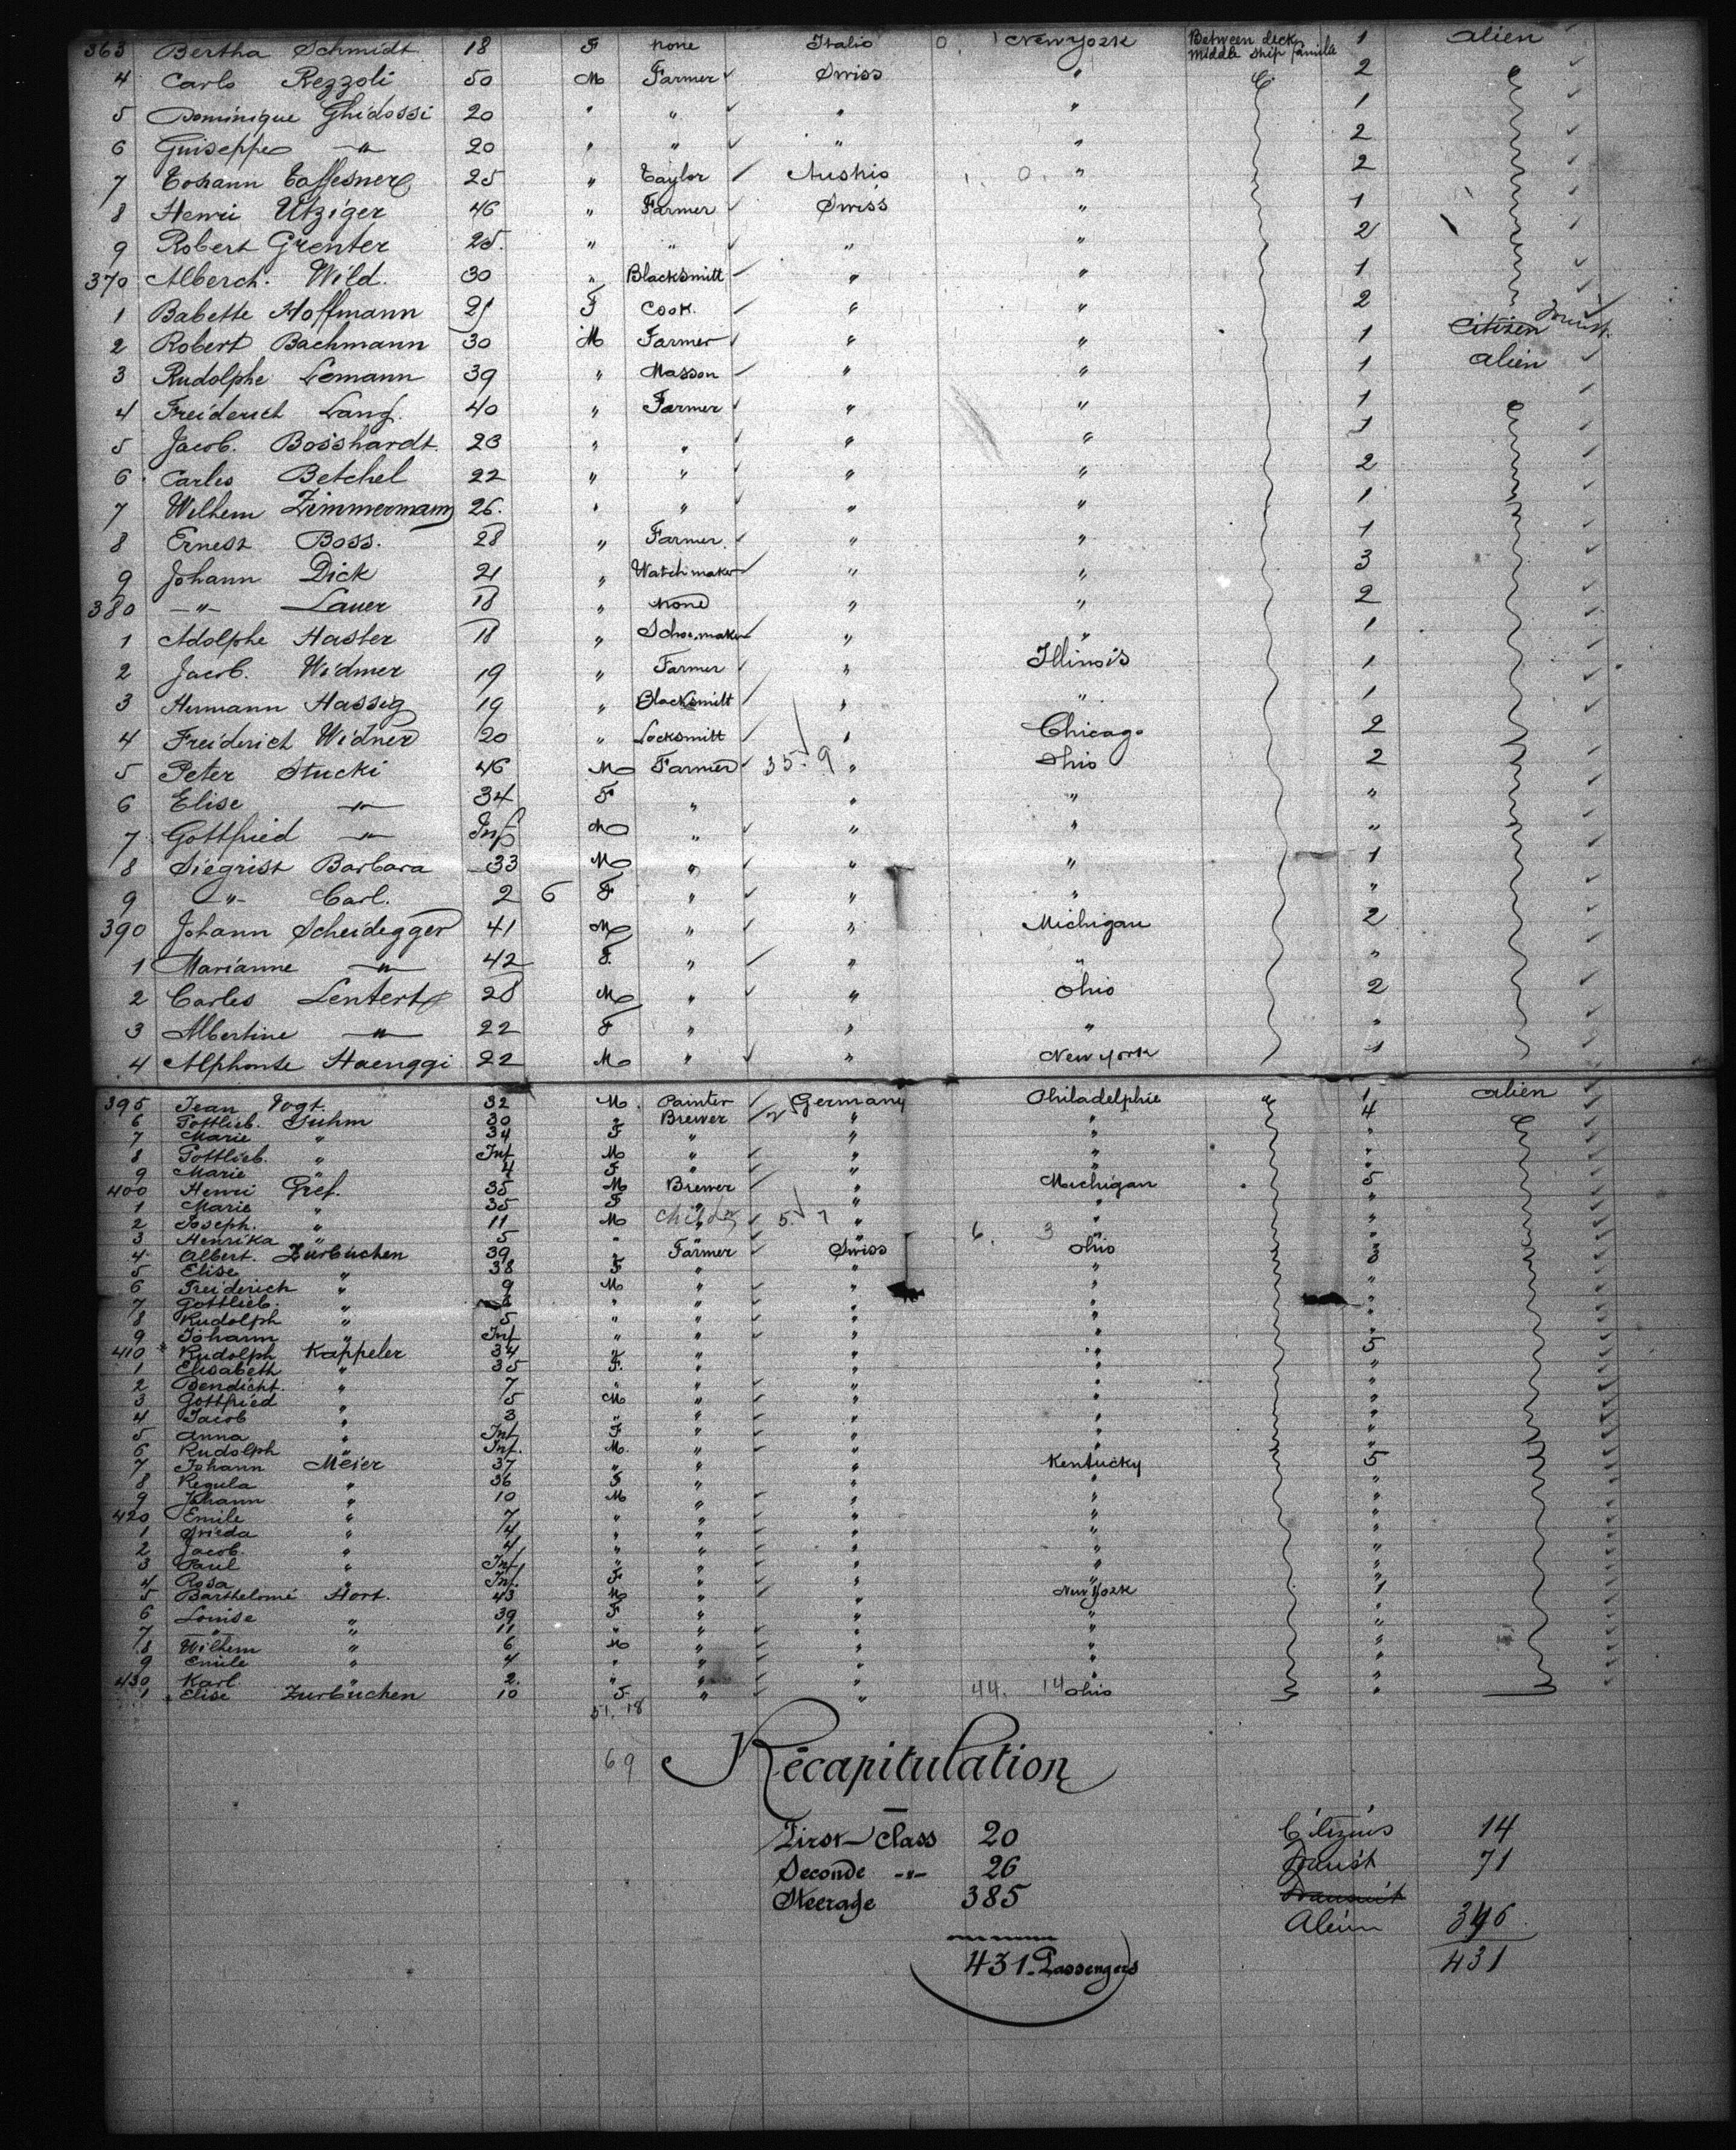 363 Bertha Schmidt 18 F none Italie 0. 1 New York Between deck middle ship families 1 alien
4 Carlo Rezzoli 50 M Farmer Swiss " 2
5 Dominique Ghidossi 20 " " " " 1
6 Guiseppe —"— 20 " " " " 2
7 25 " Taylor 1. 0. " 2
8 Henri Utziger 46 " Farmer Swiss " 1
9 Robert Grenter 25. " " " " 2
370 Alberch. Wild. 30 " Blacksmitt " " 1
1 Babette Hoffmann 21 F Cook. " " 2
2 Robert Bachmann 30 M Farmer " " 1 Citizen
3 Rudolphe Lemann 39 " Masson " " 1 alien
4 Freiderich Lang. 40 " Farmer " " 1
5 Jacob. Bosshardt. 23 " " " " 1
6 Carles Betchel 22 " " " " 2
7 Wilhem Zimmermann 26. " " " " 1
8 Ernest Boss. 28 " Farmer " " 1
9 Johann Dick 21 " Watchmaker " " 3
380 —"— Lauer 18 " none " " 2
1 Adolphe Haster 18 " Schoemaker " " 1
2 Jacob. Widmer 19 " Farmer " Illinois 1
3 Hermann Hassig 19 " Blacksmitt " " 1
4 Freiderich Widner 20 " Locksmitt " Chicago 2
5 Peter Stucki 46 M Farmer 35. 9 " Ohio 2
6 Elise —"— 34 F " " " "
7 Gottfried —"— Inf M " " " "
8 Siegrist Barbara 33 M " " " 1
9 —"— Carl. 2 6 F " " " "
390 Johann Scheidegger 41 M " " Michigan 2
1 Marianne —"— 42 F. " " " "
2 Carles Lentert 28 M " " Ohio 2
3 Albertine —"— 22 F " " " "
4 Alphonse Haenggi 22 M " " New York 1
395 Jean Vogt. 32 M. Painter Germany Philadelphie 1 alien
6 Gottlieb. 30 " Brewer 2 " " 4
7 Marie " 34 F " " " "
8 Gottlieb. " Inf M " " " "
9 Marie " 4 F " " " "
400 Henri Gref. 35 M Brewer " Michigan 5
1 Marie " 35 F " " " "
2 Joseph. " 11 M 5. 7 " " "
3 Henrika " 5 " " " 6. 3 " "
4 Albert. Zurbuchen 39 " Farmer Swiss Ohio 3
5 Elise " 38 F " " " "
6 Freiderich " 9 M " " " "
7 Gottlieb. " " " " " "
8 Rudolph " 5 " " " " "
9 Johann " Inf " " " " "
410 Rudolph Kappeler 34 " " " " 5
1 Elisabeth " 35 F. " " " "
2 Bendicht. " 7 " " " " "
3 Gottfried " 5 M " " " "
4 Jacob " 3 " " " " "
5 Anna " Inf F " " " "
6 Rudolph " Inf. M. " " " "
7 Johann Meier 37 " " " Kentucky 5
8 Regula " 36 F " " " "
9 Johann " 10 M " " " "
420 Emile " 7 " " " " "
1 " 4 " " " " "
2 Jacob. " 4 " " " " "
3 Paul " Inf " " " " "
4 Rosa " Inf. F " " " "
5 Barthelomé Hort. 43 M " " New York 1
6 Louise " 39 F " " " "
7 —"— " 11 " " " " "
8 Wilhem " 6 M " " " "
9 Emile " 4 " " " " "
430 Karl " 2. " " " " "
1 Elise Zurbuchen 10 F " " 44. 14 Ohio "
51. 18
69
Récapitulation
First Class 20 Citizens 14
Seconde -"- 26 71
Steerage 385
Alein 346
431. Passengers 431